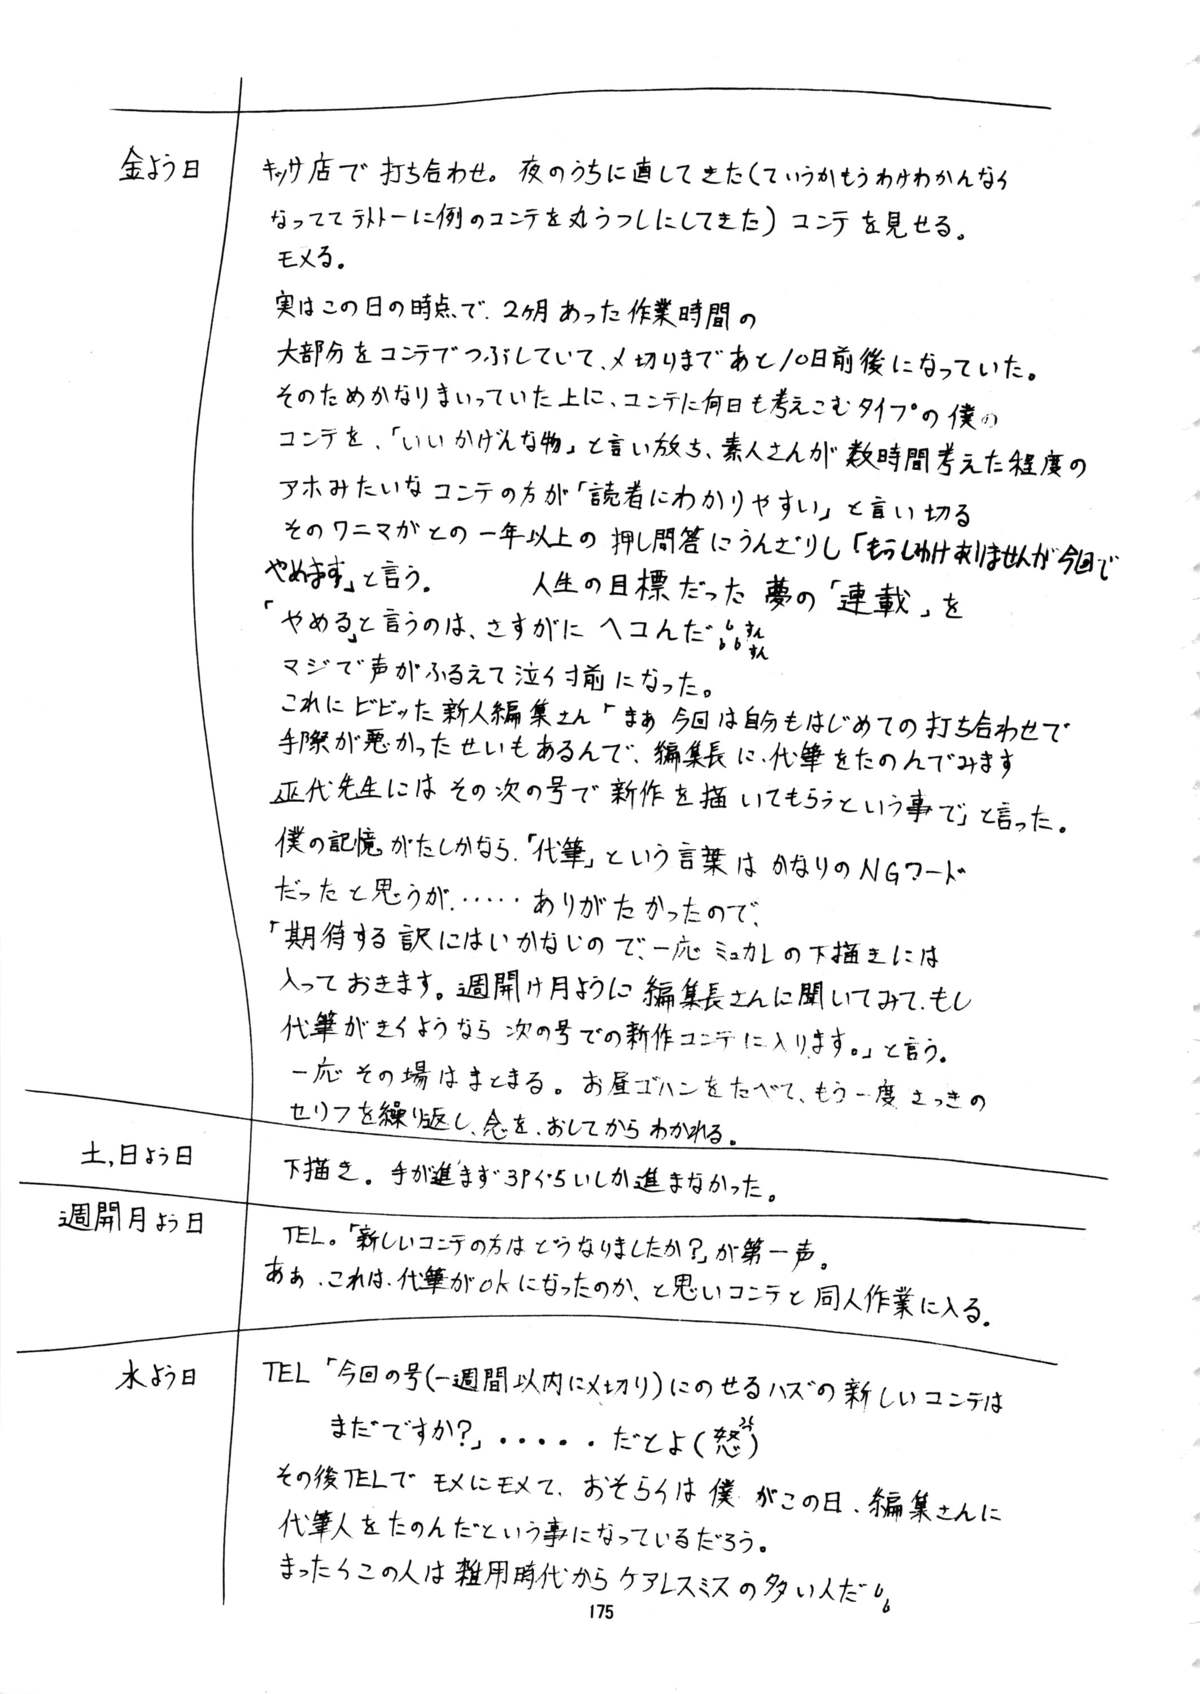 金よう日
キッサ店で打ち合わせ。夜のうちに直してきた(ていうかもうわけわかんなく
なっててテキトーに例のコンテを丸うつしにしてきた)コンテを見せる。
モメる。
実はこの日の時点で、2ヶ月あった作業時間の
大部分をコンテでつぶしていて、〆切りまであと10日前後になっていた。
そのためかなりまいっていた上に、コンテに何日も考えこむタイプの僕の
コンテを、「いいかげんな物」と言い放ち、素人さんが数時間考えた程度の
アホみたいなコンテの方が「読者にわかりやすい」と言い切る
そのワニマガとの一年以上の押し問答にうんざりし「もうしわけありませんが今回で
やめます」と言う。 人生の目標だった夢の「連載」を
「やめる」と言うのは、さすがにヘコんだ
すん
すん
マジで声がふるえて泣く寸前になった。
これにビビッた新人編集さん「まあ今回は自分もはじめての打ち合わせで
手際が悪かったせいもあるんで、編集長に、代筆をたのんでみます
巫代先生にはその次の号で新作を描いてもらうという事で」と言った。
僕の記憶がたしかなら、「代筆」という言葉はかなりのNGワード
だったと思うが、・・・・・ありがたかったので、
「期待する訳にはいかないので、一応ミュカレの下描きには
入っておきます。週開け月ように編集長さんに聞いてみて、もし
代筆がきくようなら次の号での新作コンテに入ります。」と言う。
一応その場はまとまる。お昼ゴハンをたべて、もう一度さっきの
セリフを繰り返し、念を、おしてからわかれる。
土,日よう日
下描き。手が進まず3Pぐらいしか進まなかった。
週開月よう日
TEL。「新しいコンテの方はどうなりましたか?」が第一声。
ああ、これは、代筆がokになったのか、と思いコンテと同人作業に入る。
水よう日
TEL「今回の号(一週間以内に〆切り)にのせるハズの新しいコンテは
まだですか?」・・・・・だとよ(怒)
その後TELでモメにモメて、おそらくは僕がこの日、編集さんに
代筆人をたのんだという事になっているだろう。
まったくこの人は雑用時代からケアレスミスの多い人だ
175